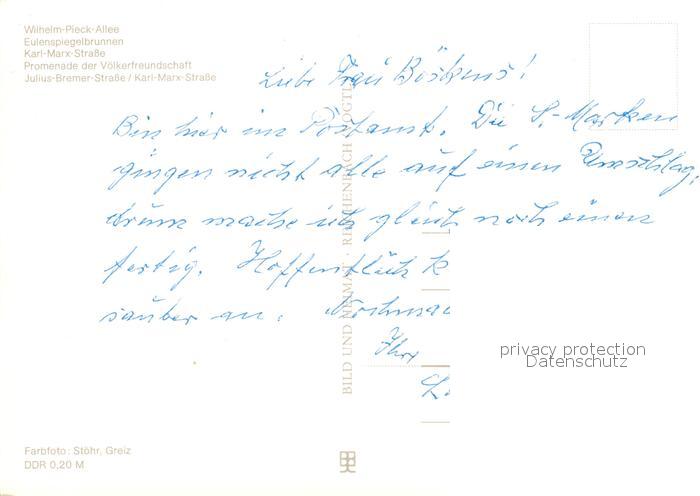 Wilhelm-Pieck-Allee
Eulenspiegelbrunnen
Karl-Marx-Straße
Promenade der Völkerfreundschaft
Julius-Bremer-Straße / Karl-Marx-Straße
Liebe Frau Böskens!
Bin hier im Postamt. Die S.-Marken
gingen nicht alle auf einen Umschlag,
drum mache ich gleich noch einen
fertig. Hoffentlich k
sauber an. Nochmal
Ihr
L.
BILD UND HEIMAT · REICHENBACH VOGTL
privacy protection
Datenschutz
Farbfoto: Stöhr, Greiz
DDR 0,20 M